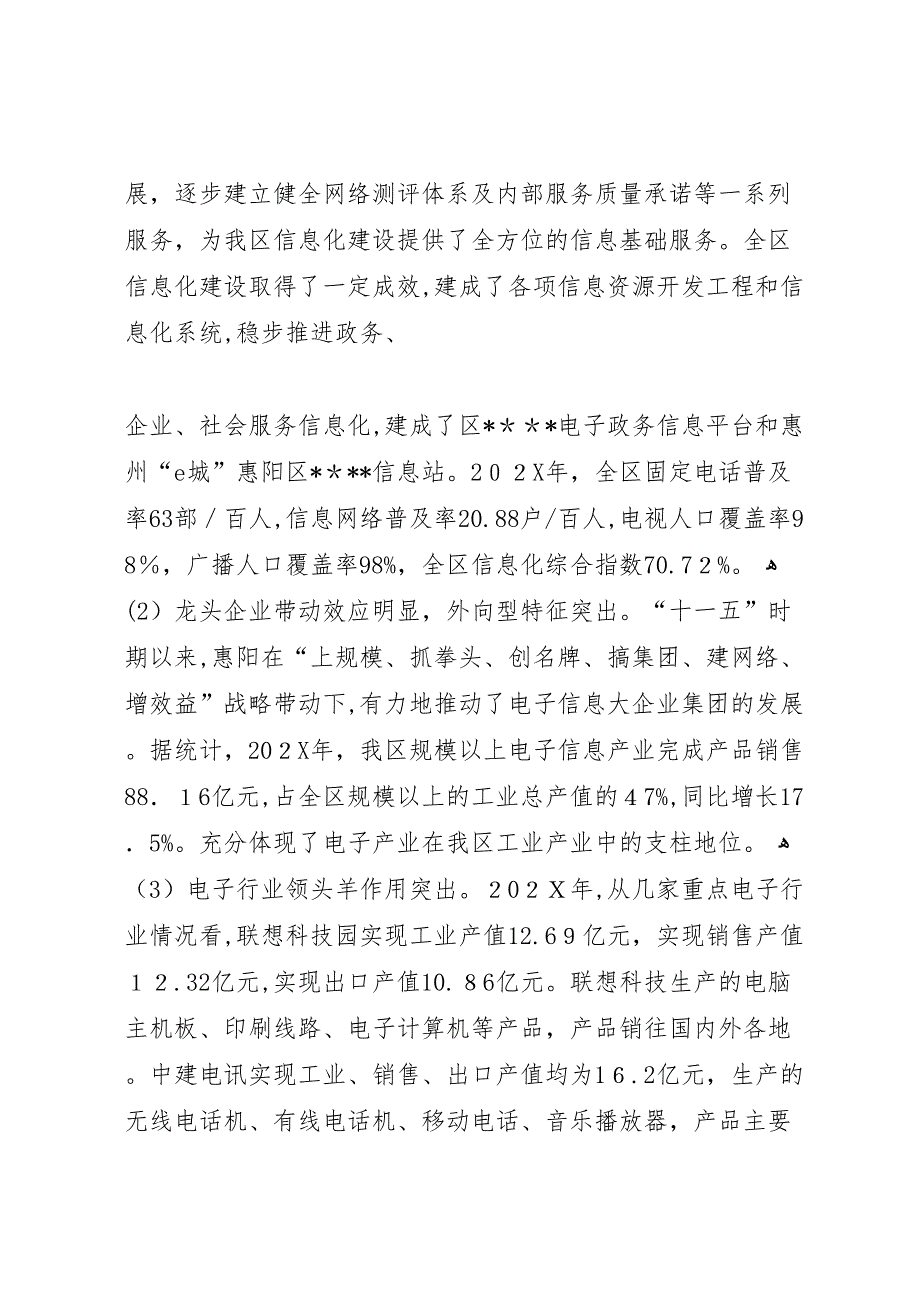 展，逐步建立健全网络测评体系及内部服务质量承诺等一系列
服务，为我区信息化建设提供了全方位的信息基础服务。全区
信息化建设取得了一定成效,建成了各项信息资源开发工程和信
息化系统,稳步推进政务、
企业、社会服务信息化,建成了区*＊＊*电子政务信息平台和惠
州“e城”惠阳区*＊**信息站。2０２X年，全区固定电话普及
率63部／百人,信息网络普及率20.88户/百人,电视人口覆盖率9
8％，广播人口覆盖率98%，全区信息化综合指数70.7２%。ﻫ
(2）龙头企业带动效应明显，外向型特征突出。“十一五”时
期以来,惠阳在“上规模、抓拳头、创名牌、搞集团、建网络、
增效益”战略带动下,有力地推动了电子信息大企业集团的发展
。据统计，20２X年，我区规模以上电子信息产业完成产品销售
88．１6亿元,占全区规模以上的工业总产值的４7%,同比增长17
．5%。充分体现了电子产业在我区工业产业中的支柱地位。ﻫ
（3）电子行业领头羊作用突出。２0２Ｘ年,从几家重点电子行
业情况看,联想科技园实现工业产值12.6９亿元，实现销售产值
１２.32亿元,实现出口产值10.８6亿元。联想科技生产的电脑
主机板、印刷线路、电子计算机等产品，产品销往国内外各地
。中建电讯实现工业、销售、出口产值均为1６.2亿元，生产的
无线电话机、有线电话机、移动电话、音乐播放器，产品主要